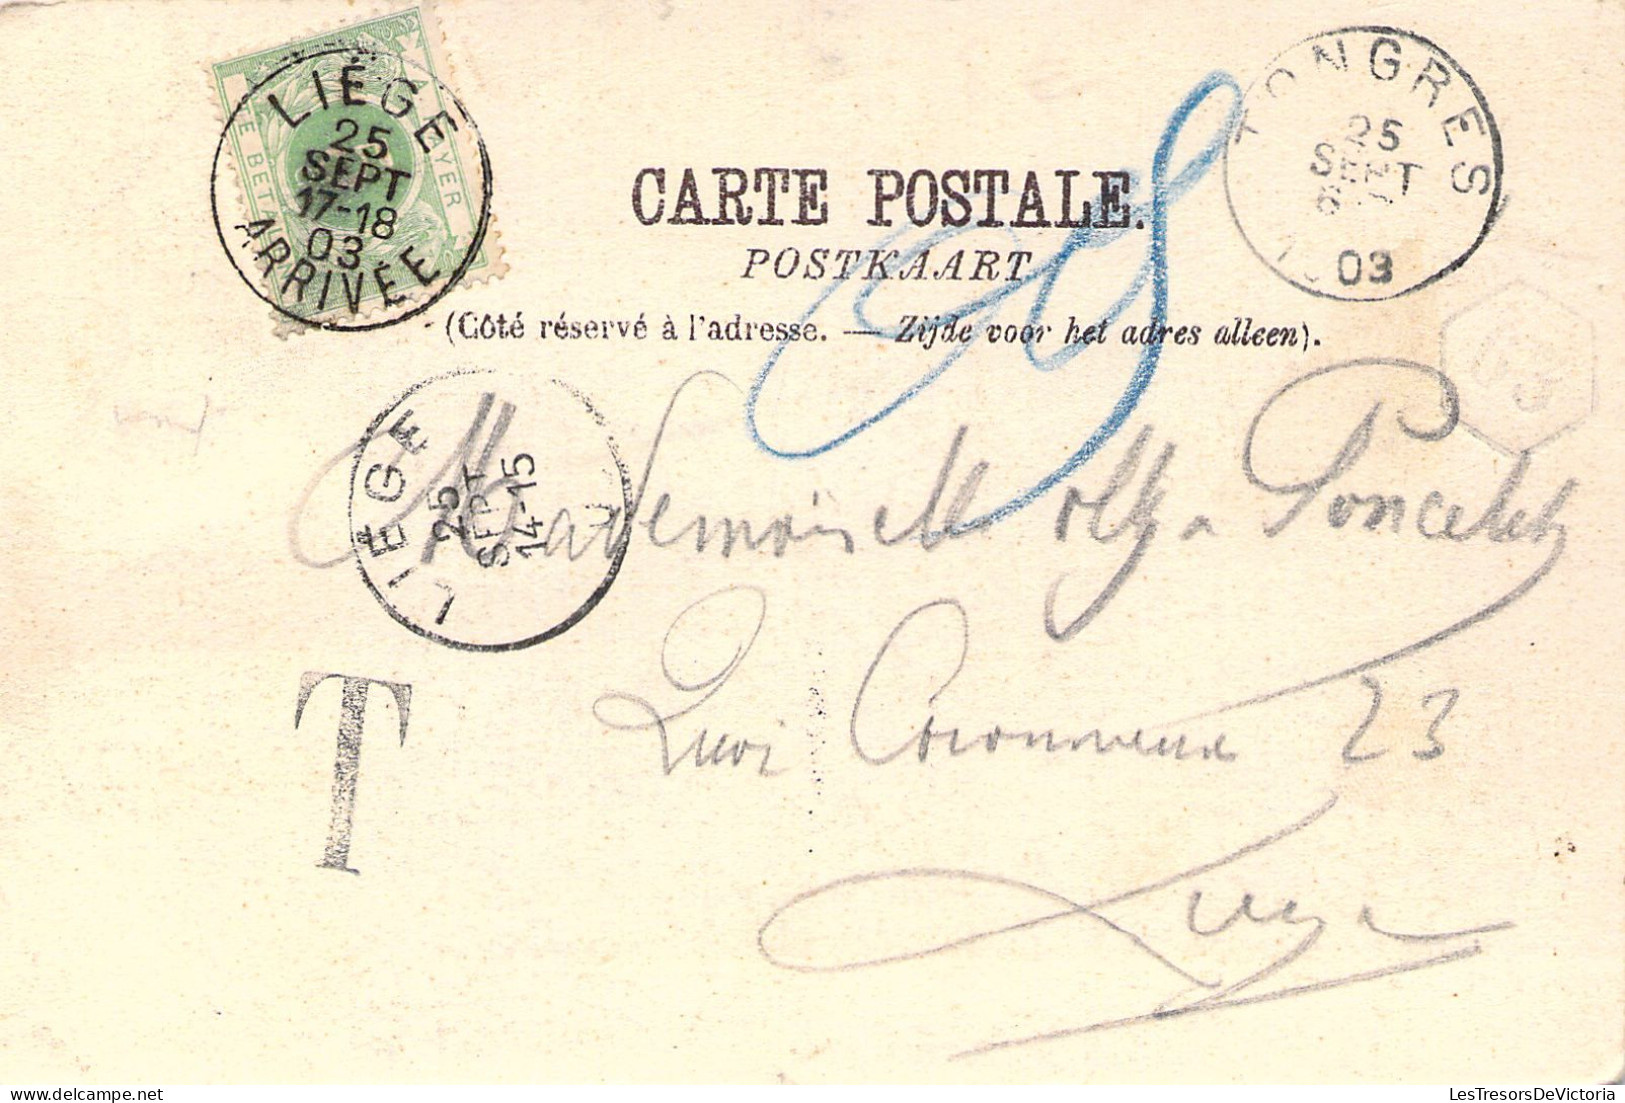 LIÉGE
25
SEPT
17-18
03
ARRIVÉE
TONGRES
25
SEPT
03
CARTE POSTALE.
POSTKAART
(Côté réservé à l'adresse. — Zijde voor het adres alleen).
LIÉGE
25
SEPT
14-15
Mademoiselle Olga Poncelet
Quai Coronmeuse 23
T
Liège
LesTresorsDeVictoria